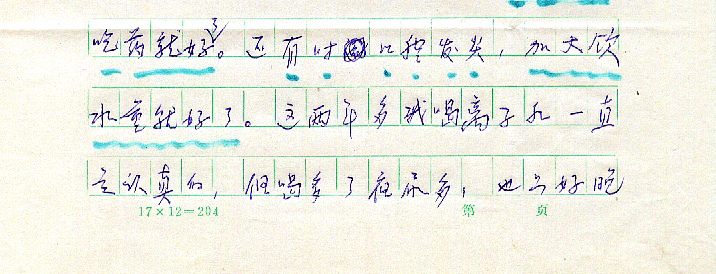 吃药就好了。还有时口腔发炎，加大饮
水量就好了。这两年多我喝离子水一直
是认真的，但喝多了夜尿多，也只好晚
17×12=204 第 页